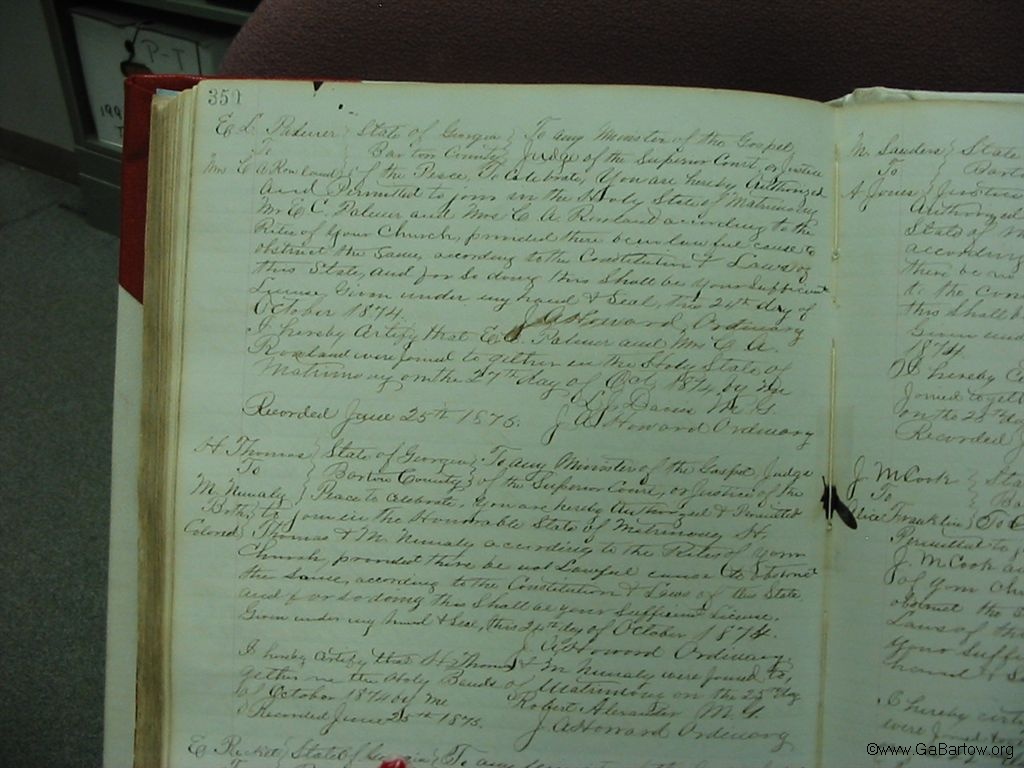 P-T
199
350
E. L. Palmer } State of Georgia } To any Minister of the Gospel,
To } Bartow County } Judge of the Superior Court, or Justice
Mrs C A Rowland } of the Peace, to Celebrate, You are hereby Authorized
and Permitted to join in the Holy State of Matrimony
Mr E C. Palmer and Mrs C A Rowland according to the
Rites of Your Church, provided there be no lawful cause to
obstruct the Same, according to the Constitution & Laws of
this State, and for So doing this Shall be Your Sufficient
License Given under my hand & Seal, this 24th day of
October 1874. J A Howard, Ordinary
I hereby Certify that E C Palmer and Mrs C A.
Rowland were joined together in the Holy State of
Matrimony on the 27th day of Oct 1874 by me
Davis M. G.
Recorded June 25th 1875. J A Howard Ordinary
H. Thomas } State of Georgia } To any Minister of the Gospel, Judge
To } Bartow County } of the Superior Court, or Justice of the
M. Nunaly } Peace to Celebrate, You are hereby Authorized & Permitted
Both to join in the Honorable State of Matrimony H.
Colored Thomas & M. Nunaly according to the Rites of Your
Church, provided there be not Lawful cause to obstruct
the Same, according to the Constitution & Laws of this State
and for so doing this Shall be your Sufficient License.
Given under my hand & Seal, this 24th day of October 1874.
J. A Howard Ordinary
I hereby Certify that H Thomas & M Nunaly were joined to,
gether in the Holy Bands of Matrimony on the 25th day
of October 1874 by me Robert Alexander M. G.
Recorded June 25th 1875. J A Howard Ordinary
E Rickett } State of Georgia } To any
M. Sanders } State
To } Barto
A Jones } Justice
Authorized
State of M
according
there be no
to the Con
this Shall b
Given und
1874
I hereby Ce
Joined togeth
on the 25th
Recorded J
J. M Cook } Sta
To } Ba
Alice Franklin } To C
Permitted to j
J. M Cook an
of your Chu
obstruct the S
Laws of this
your Suffi
hand & S
I hereby cert
were joined to
©www.GaBartow.org